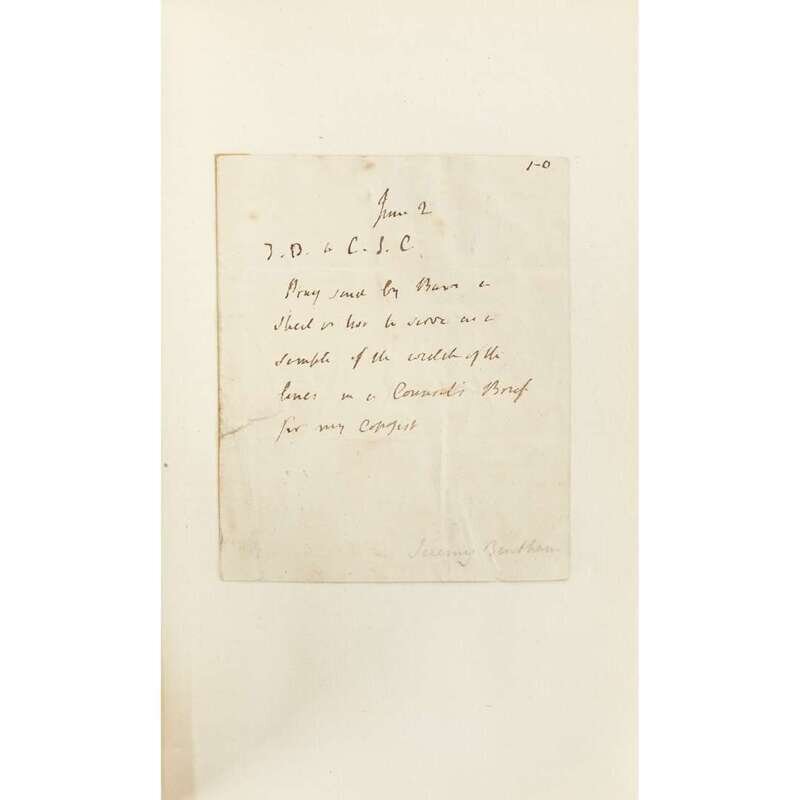 1-0
June 2
J. B. to C. S. C.
Pray send by Barr a
sheet or two to serve as a
sample of the width of the
lines in a Counsel's Brief
for my Copyist
Jeremy Bentham